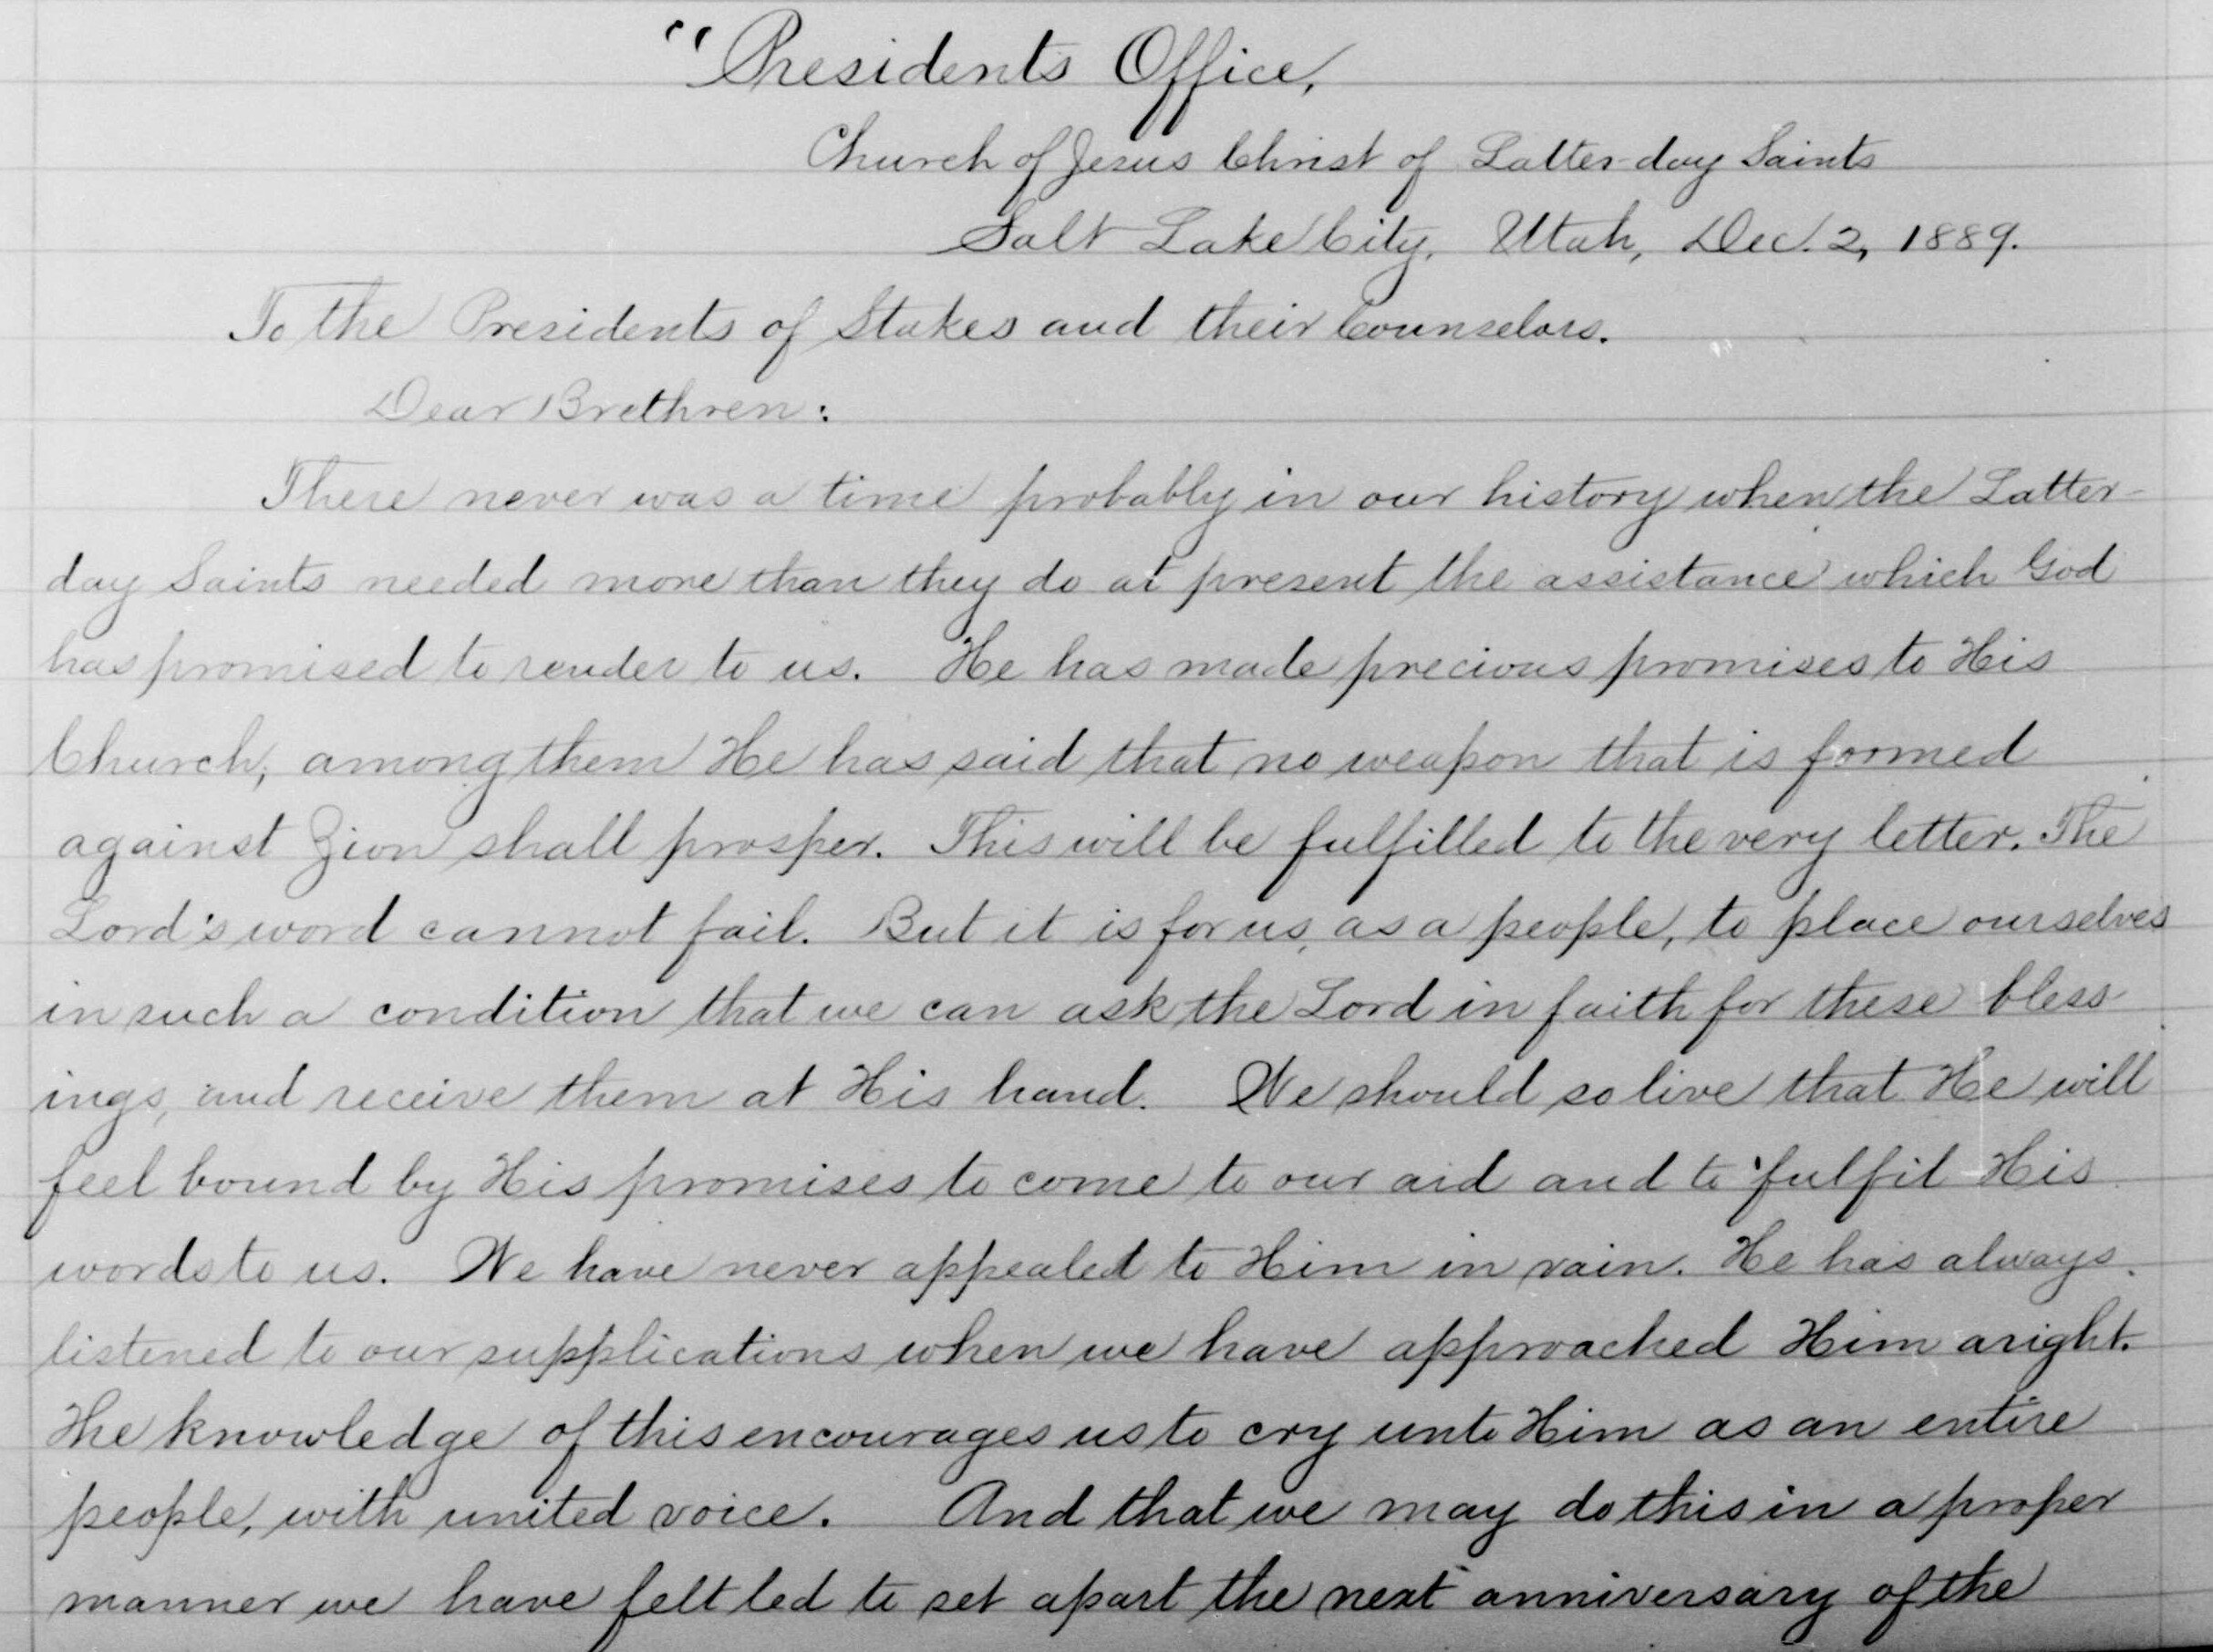 "Presidents Office,
Church of Jesus Christ of Latter-day Saints
Salt Lake City, Utah, Dec. 2, 1889.
To the Presidents of Stakes and their Counselors.
Dear Brethren:
There never was a time probably in our history when the Latter-
day Saints needed more than they do at present the assistance which God
has promised to render to us. He has made precious promises to His
Church; among them He has said that no weapon that is formed
against Zion shall prosper. This will be fulfilled to the very letter. The
Lord's word cannot fail. But it is for us, as a people, to place ourselves
in such a condition that we can ask the Lord in faith for these bless-
ings, and receive them at His hand. We should so live that He will
feel bound by His promises to come to our aid and to fulfil His
words to us. We have never appealed to Him in vain. He has always
listened to our supplications when we have approached Him aright.
The knowledge of this encourages us to cry unto Him as an entire
people, with united voice. And that we may do this in a proper
manner we have felt led to set apart the next anniversary of the